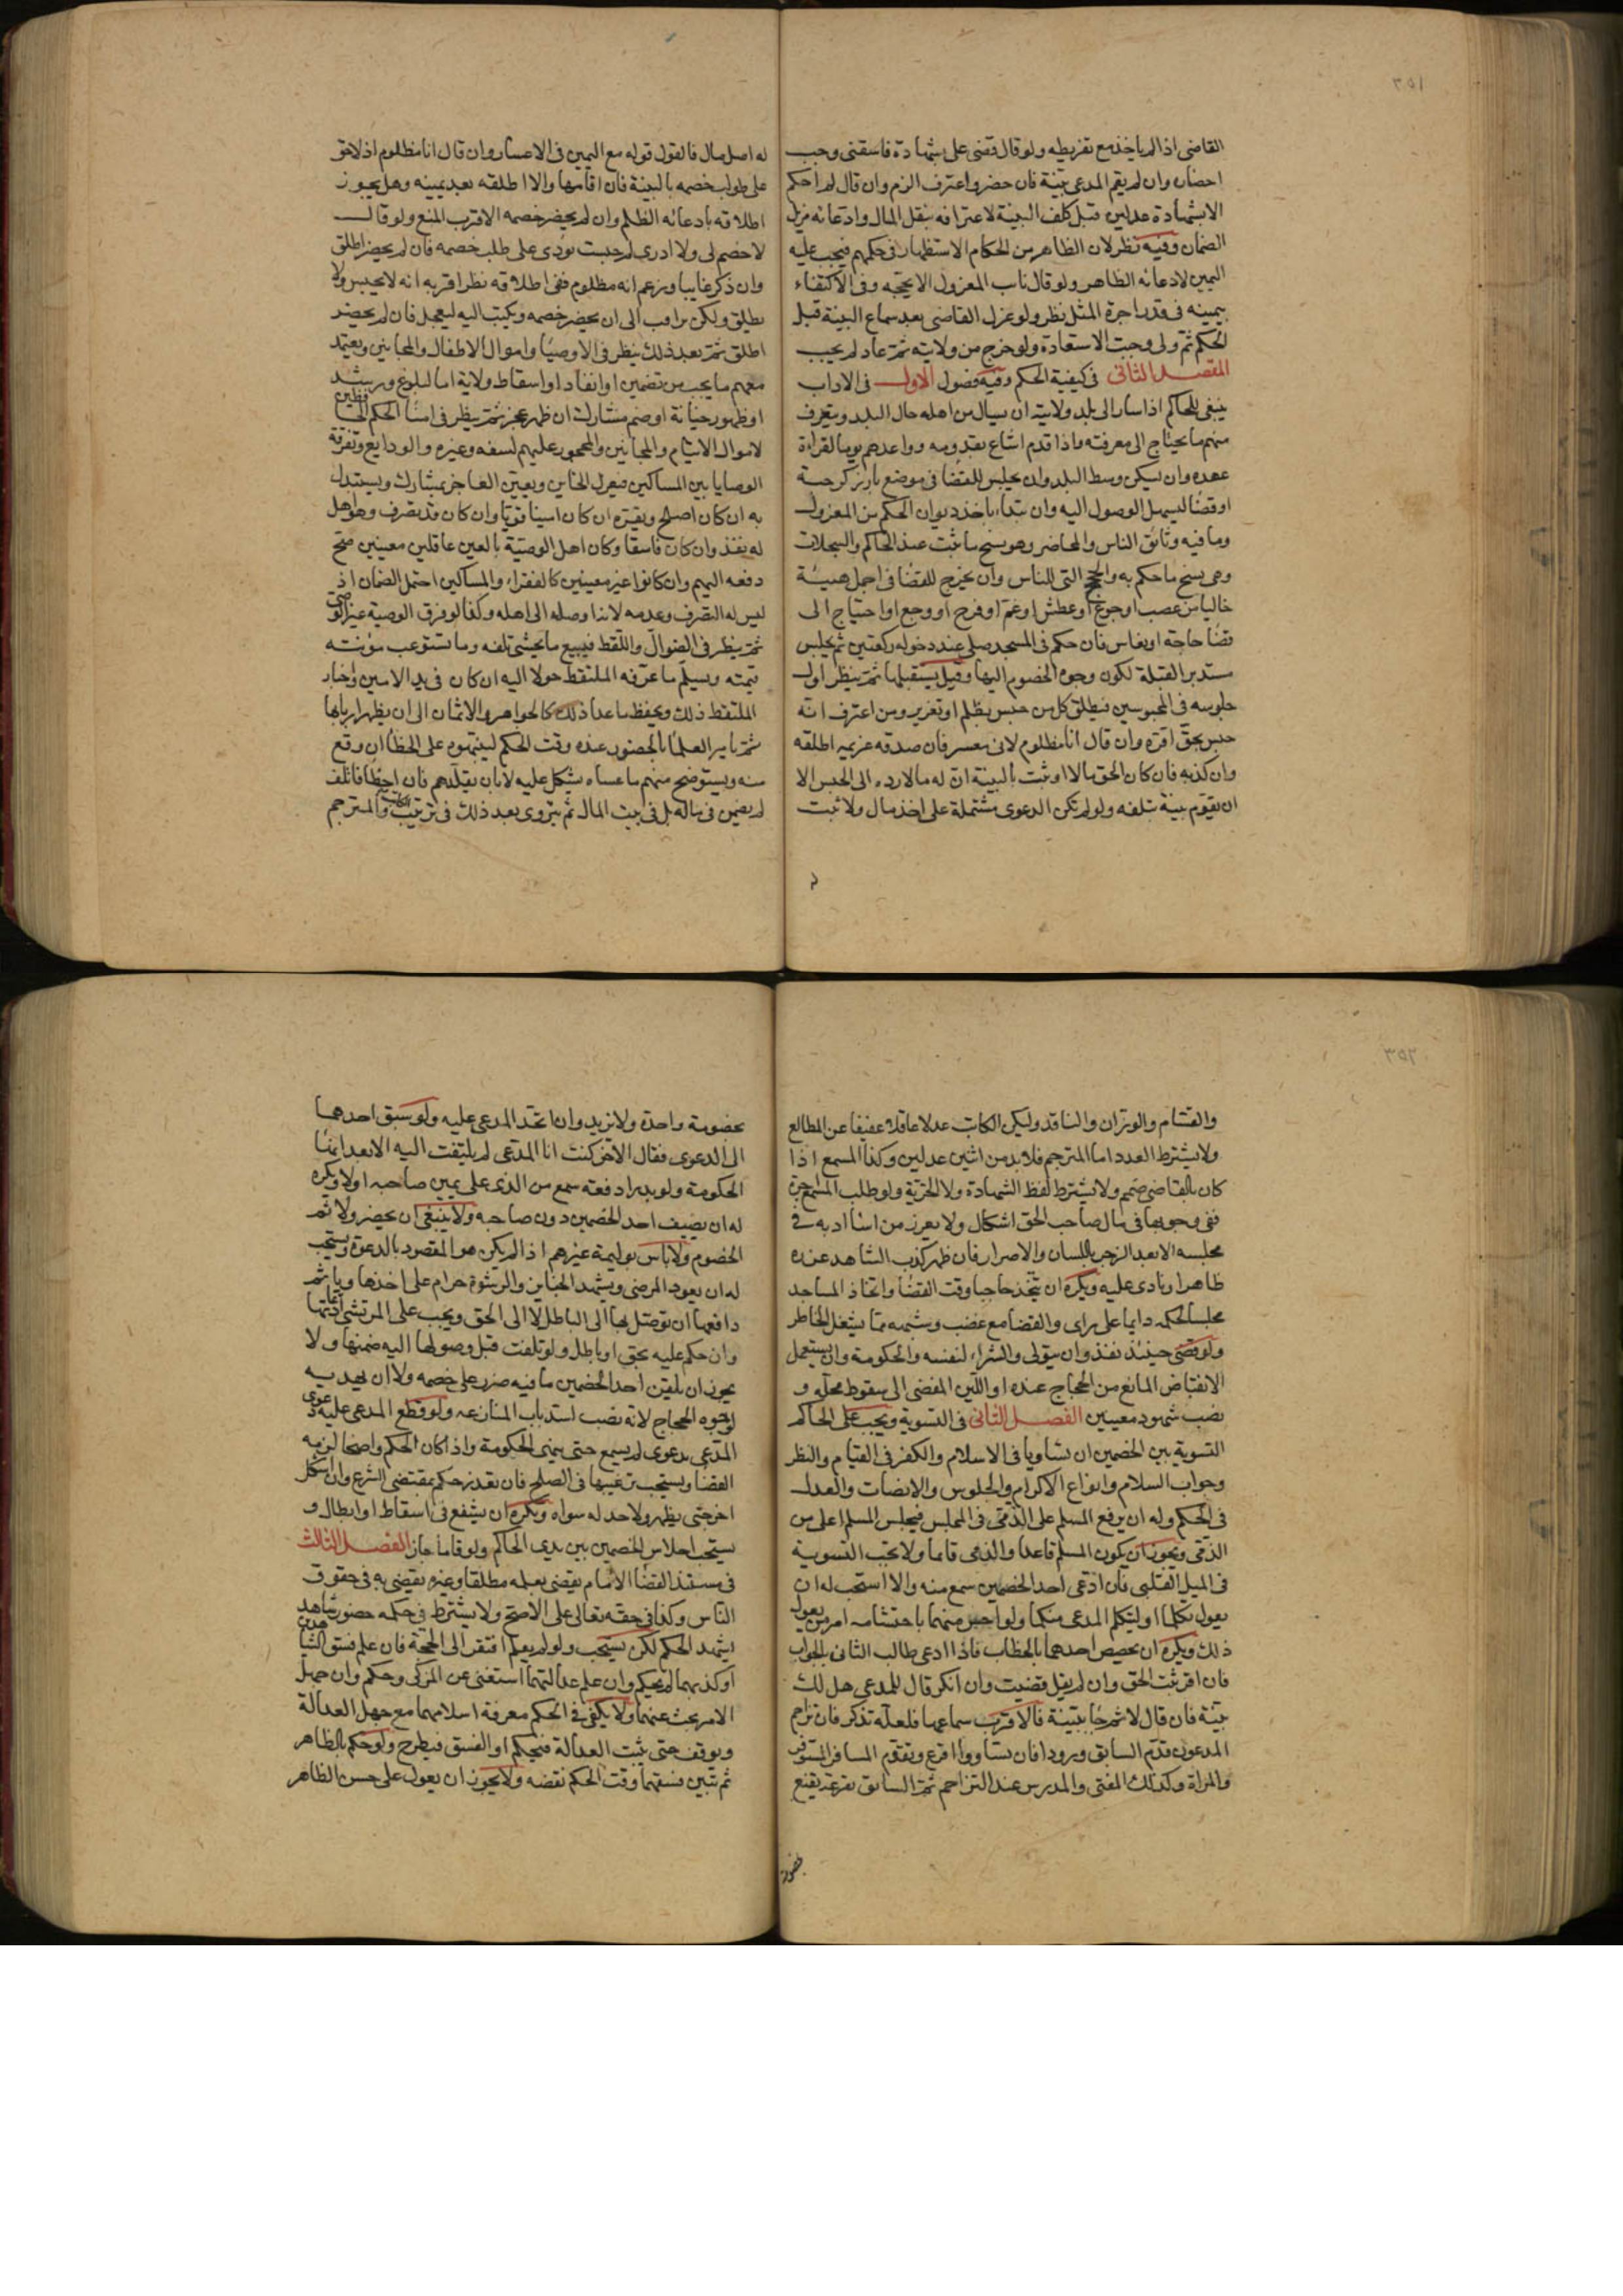 ٣٥١
القاضى اذا لم ياخذ مع تفريطه ولو قال قضى على بشهادة فاسقين وجب
احضاره وان لم يقم المدعى بينة فان حضر واعترف الزم وان قال لم احكم
الا بشهادة عدلين قبل كلف البينة لاعترافه بنقل المال وادعائه مزيل
الضمان وفيه نظر لان الظاهر من الحكام الاستظهار فى حكمهم فيجب عليه
اليمين لادعائه الظاهر ولو قال ناب المعزول الا يحجه وفى الاكتفاء
بيمينه فى قدر اجرة المثل نظر ولو عزل القاضى بعد سماع البينة قبل
الحكم ثم ولى وجبت الاستعادة ولو خرج من ولايته ثم عاد لم يجب
المقصد الثانى فى كيفية الحكم وفيه فصول الاول فى الاداب
ينبغى للحاكم اذا سار الى بلد ولايته ان يسال من اهله حال البلد ويتعرف
منهم ما يحتاج الى معرفته فاذا قدم اشاع بقدومه وواعدهم يوما لقراءة
عهده وان يسكن وسط البلد وان يجلس للقضا فى موضع بارز كرحبة
او فضا ليسهل الوصول اليه وان يبتداء باخذ ديوان الحكم من المعزول
وما فيه وثائق الناس والمحاضر وهو نسخ ما ثبت عند الحاكم والسجلات
وهى نسخ ما حكم به والحجج التى للناس وان يخرج للقضا فى اجمل هيئة
خاليا من غضب او جوع او عطش او غم او فرح او وجع او احتياج الى
قضا حاجة او نعاس فان حكم فى المسجد صلى عند دخوله ركعتين ثم يجلس
مستدبر القبلة لكون وجوه الخصوم اليها وقيل يستقبلها ثم ينظر اول
جلوسه فى المحبوسين فيطلق كل من حبس بظلم او تعزير ومن اعترف انه
حبس بحق اقره وان قال انا مظلوم لانى معسر فان صدقه غريمه اطلقه
وان كذبه فان كان الحق مالا او ثبت بالبينة ان له مالا رده الى الحبس الا
ان يقوم بينة بتلفه ولو لم تكن الدعوى مشتملة على اخذ مال ولا ثبت
له اصل مال فالقول قوله مع اليمين فى الاعسار وان قال انا مظلوم اذ لا حق
على طولب خصمه بالبينة فان اقامها والا اطلقه بعد يمينه وهل يجوز
اطلاقه بادعائه الظلم وان لم يحضر خصمه الاقرب المنع ولو قال
لا خصم لى ولا ادرى لم حبست نودى على طلب خصمه فان لم يحضر اطلق
وان ذكر غايبا وزعم انه مظلوم ففى اطلاقه نظر اقربه انه لا يحبس ولا
يطلق ولكن يراقب الى ان يحضر خصمه ويكتب اليه ليعجل فان لم يحضر
اطلق ثم بعد ذلك ينظر فى الاوصياء واموال الاطفال والمجانين ويعتمد
معهم ما يجب من تضمين او انفاد او اسقاط ولاية اما لبلوغ ورشد
او ظهور خيانة او ضم مشارك ان ظهر عجز ثم ينظر فى امنا الحكم الحافظين
لاموال الايتام والمجانين والمحجور عليهم لسفه وغيره والودايع وتفرقة
الوصايا بين المساكين فيعزل الخاين ويعين العاجز بمشارك ويستبدل
به ان كان اصلح ويقره ان كان امينا قويا وان كان قد تصرف وهو اهل
له نفذ وان كان فاسقا وكان اهل الوصية بالغين عاقلين معينين صح
دفعه اليهم وان كانوا غير معينين كالفقراء والمساكين احتمل الضمان اذ
ليس له التصرف وعدمه لانه اوصله الى اهله وكذا لو فرق الوصية غير الوصى
ثم ينظر فى الضوال واللقط فيبيع ما يخشى تلفه وما تستوعب مؤنته
قيمته ويسلم ما عرفه الملتقط حولا اليه ان كان فى يد الامين واختار
الملتقط ذلك ويحفظ ما عدا ذلك كالجواهر والاثمان الى ان يظهر اربابها
ثم يامر العلماء بالحضور عنده وقت الحكم لينبهوه على الخطا ان وقع
منه ويستوضح منهم ما عساه يشكل عليه لا بان يقلدهم فان اخطا فاتلف
لم يضمن فى ماله بل فى بيت المال ثم يتروى بعد ذلك فى ترتيب الكاتب والمترجم
٣٥٢
والقسام والوزان والناقد وليكن الكاتب عدلا عاقلا عفيفا عن المطالع
ولا يشترط العدد اما المترجم فلابد من اثنين عدلين وكذا المسمع اذا
كان بالقاضى صمم ولا يشترط لفظ الشهادة ولا الحرية ولو طلب المسمع اجرة
ففى وجوبها فى مال صاحب الحق اشكال ولا يعزر من اسا ادبه فى
مجلسه الا بعد الزجر باللسان والاصرار فان ظهر كذب الشاهد عزره
ظاهرا ونادى عليه ويكره ان يتخذ حاجبا وقت القضا واتخاذ المساجد
مجلسا لحكمه دايما على راى والقضا مع غضب وشبهه مما يشغل الخاطر
ولو قضى حينئذ نفذ وان يتولى والشراء لنفسه والحكومة وان يستعمل
الانقباض المانع من الحجاج عنده او اللين المفضى الى سقوط محله و
نصب شهود معينين الفصل الثانى فى التسوية ويجب على الحاكم
التسوية بين الخصمين ان تساويا فى الاسلام والكفر فى القيام والنظر
وجواب السلام وانواع الاكرام والجلوس والانصات والعدل
فى الحكم وله ان يرفع المسلم على الذمى فى المجلس فيجلس المسلم اعلى من
الذمى ويجوز ان يكون المسلم قاعدا والذمى قايما ولا يجب التسوية
فى الميل القلبى فان ادعى احد الخصمين سمع منه والا استحب له ان
يقول تكلما او ليتكلم المدعى منكما ولو احس منهما باحتشامه امر من يقول
ذلك ويكره ان يخصص احدهما بالخطاب فاذا ادعى طالب الثانى بالجواب
فان اقر ثبت الحق وان لم يقل قضيت وان انكر قال للمدعى هل لك
بينة فان قال لا ثم جاء ببينة فالاقرب سماعها فلعله تذكر فان تزاحم
المدعون قدم السابق ورودا فان تساووا اقرع ويقدم المسافر المستوفز
والمراة وكذلك المفتى والمدرس عند التزاحم ثم السابق بقرعة يقنع
بخصومة
بخصومة واحدة ولا يزيد وان اتحد المدعى عليه ولو سبق احدهما
الى الدعوى فقال الاخر كنت انا المدعى لم يلتفت اليه الا بعد انتها
الحكومة ولو بدرا دفعة سمع من الذى على يمين صاحبه اولا ويكره
له ان يضيف احد الخصمين دون صاحبه ولا ينبغى ان يحضر ولائم
الخصوم ولا باس بوليمة غيرهم اذا لم يكن هو المقصود بالدعوة ويستحب
له ان يعود المرضى ويشهد الجنايز والرشوة حرام على اخذها وياثم
دافعها ان توصل بها الى الباطل لا الى الحق ويجب على المرتشى اعادتها
وان حكم عليه بحق او باطل ولو تلفت قبل وصولها اليه ضمنها ولا
يجوز ان يلقن احد الخصمين ما فيه ضرر على خصمه ولا ان يهديه
لوجوه الحجاج لانه نصب لسد باب المنازعة ولو قطع المدعى عليه دعوى
المدعى بدعوى لم يسمع حتى ينهى الحكومة واذا كان الحكم واضحا لزمه
القضا ويستحب ترغيبها فى الصلح فان تعذر حكم بمقتضى الشرع وان اشكل
اخر حتى يظهر ولا حد له سواه ويكره ان يشفع فى اسقاط او ابطال و
يستحب اجلاس الخصمين بين يدى الحاكم ولو قاما جاز الفصل الثالث
فى مستند القضا الامام يقضى بعلمه مطلقا وغيره يقضى به فى حقوق
الناس وكذا فى حقه تعالى على الاصح ولا يشترط فى حكمه حضور شاهد
يشهد الحكم لكن يستحب ولو لم يعلم افتقر الى الحجة فان علم فسق الشاهدين
او كذبهما لم يحكم وان علم عدالتهما استغنى عن المزكى وحكم وان جهل
الامر بحث عنهما ولا يكفى فى الحكم معرفة اسلامهما مع جهل العدالة
ويوقف حتى يثبت العدالة فيحكم او الفسق فيطرح ولو حكم بالظاهر
ثم تبين فسقهما وقت الحكم نقضه ولا يجوز ان يعول على حسن الظاهر